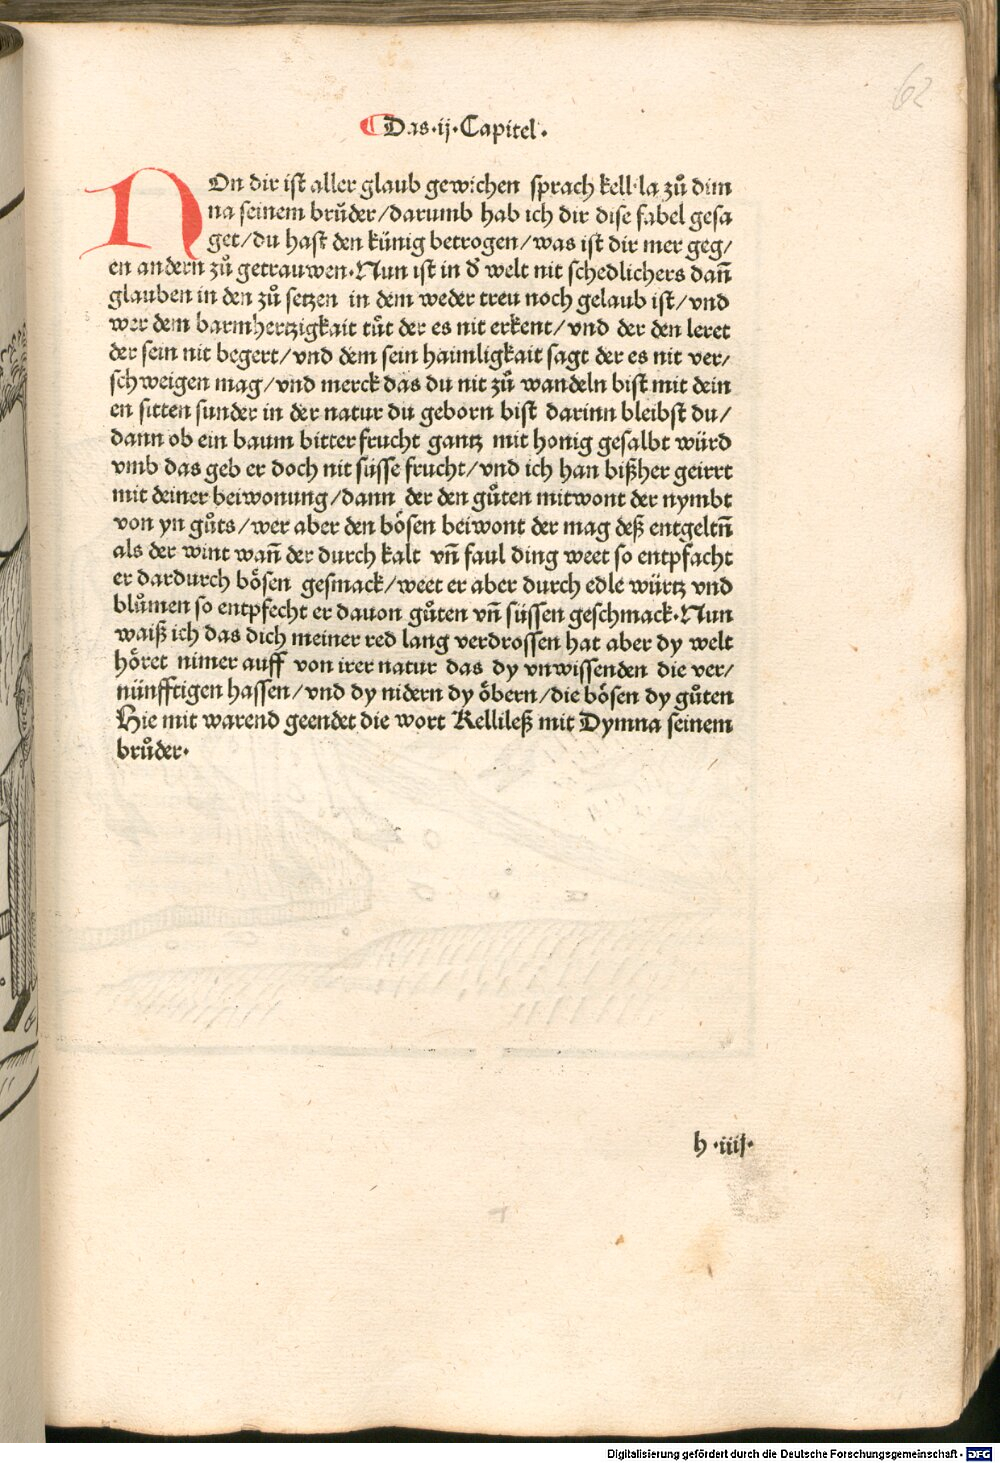 62
Das·ij·Capitel·
VOn dir ist aller glaub gewichen sprach kellila zů dim
na seinem brůder/darumb hab ich dir dise fabel gesa
get/du hast den künig betrogen/was ist dir mer geg/
en andern zů getrauwen·Nun ist in d̕ welt nit schedlichers dañ
glauben in den zů setzen in dem weder treu noch gelaub ist/vnd
wer dem barmhertzigkait tůt der es nit erkent/vnd der den leret
der sein nit begert/vnd dem sein haimligkait sagt der es nit ver/
schweigen mag/vnd merck das du nit zů wandeln bist mit dein
en sitten sunder in der natur du geborn bist darinn bleibst du/
dann ob ein baum bitter frucht gantz mit honig gesalbt würd
vmb das geb er doch nit süsse frucht/vnd ich han bißher geirrt
mit deiner beiwonung/dann der den gůten mitwont der nymbt
von yn gůts/wer aber den bösen beiwont der mag deß entgeltñ
als der wint wañ der durch kalt vñ faul ding weet so entpfacht
er dardurch bösen gesmack/weet er aber durch edle würtz vnd
blůmen so entpfecht er dauon gůten vñ süssen geschmack·Nun
waiß ich das dich meiner red lang verdrossen hat aber dy welt
höret nimer auff von irer natur das dy vnwissenden die ver/
nünfftigen hassen/vnd dy nidern dy öbern/die bösen dy gůten
Hie mit warend geendet die wort Kellileß mit Dymna seinem
brůder·
h·iiij·
Digitalisierung gefördert durch die Deutsche Forschungsgemeinschaft - DFG